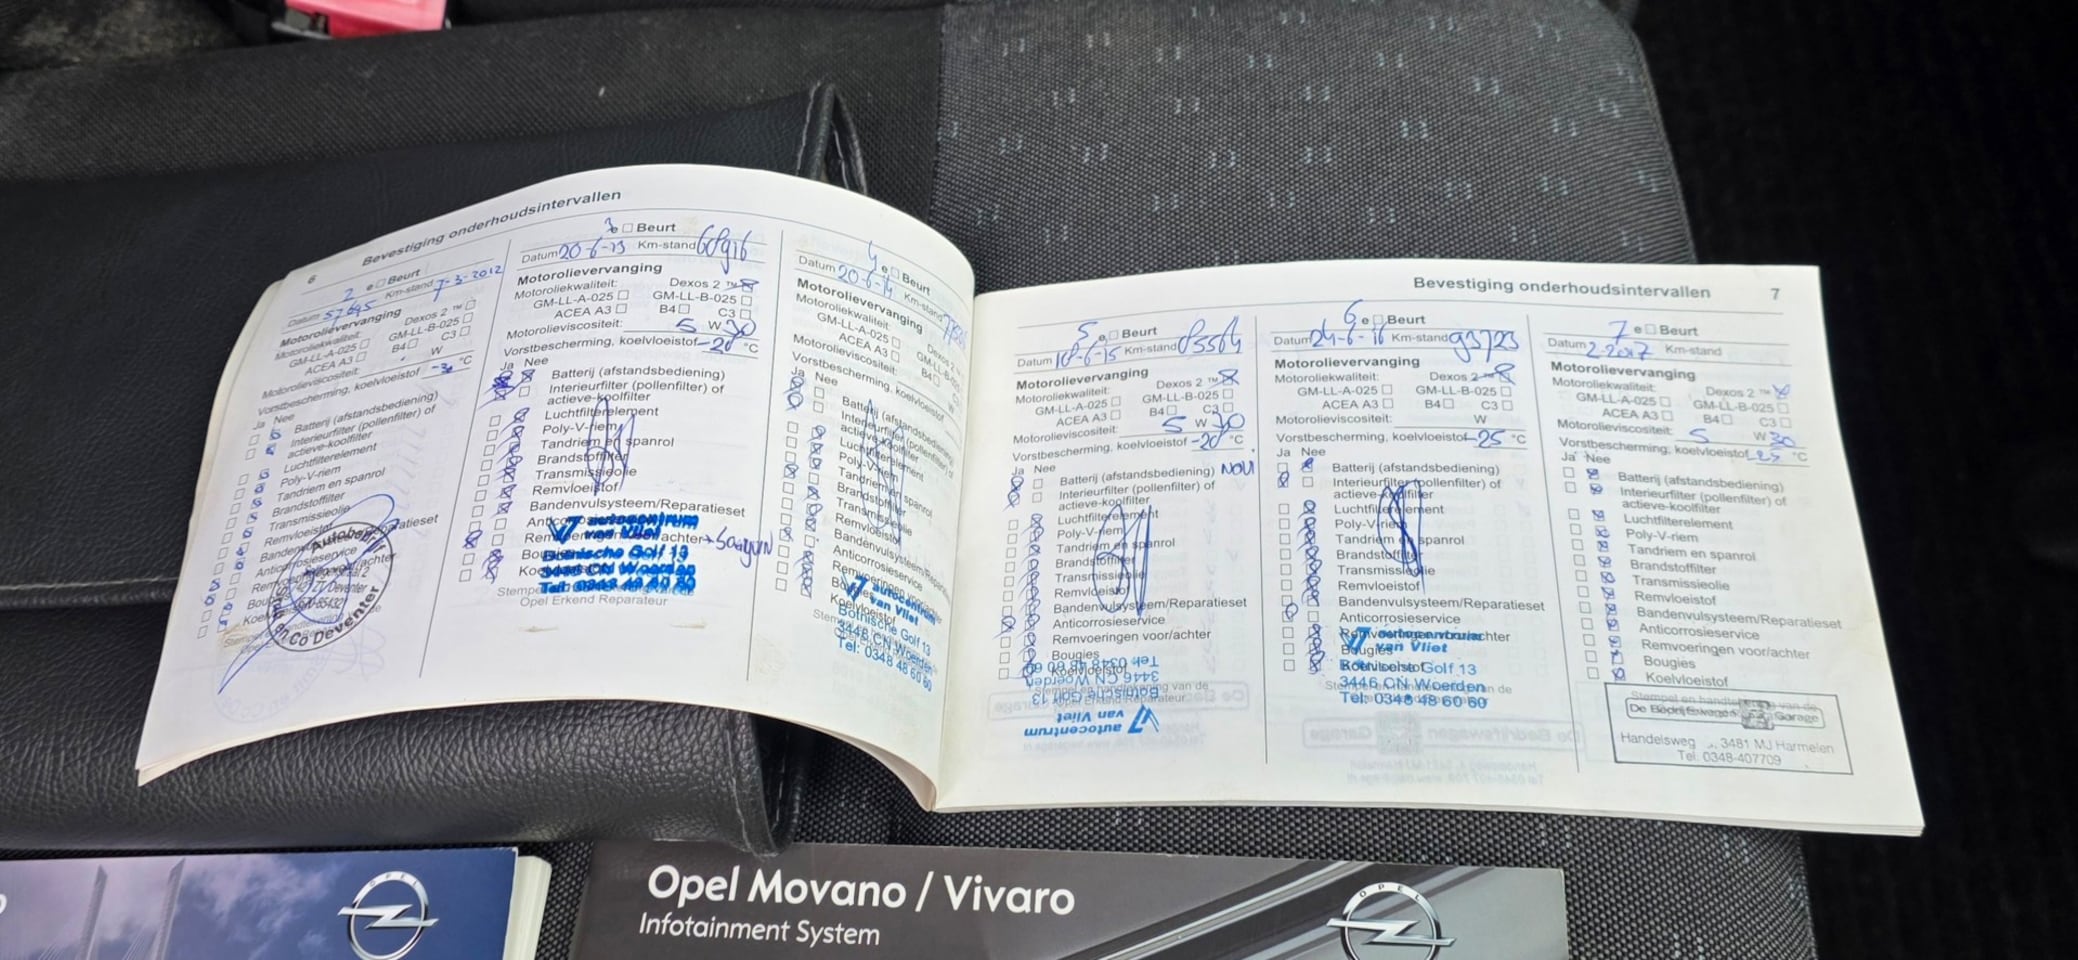 6 Bevestiging onderhoudsintervallen
2 e Beurt
Datum 57645 Km-stand 7-3-2012
Motorolievervanging
Motoroliekwaliteit: Dexos 2 ™
GM-LL-A-025 GM-LL-B-025
ACEA A3 B4 C3
Motorolieviscositeit: W
Vorstbescherming, koelvloeistof °C
Ja Nee
Batterij (afstandsbediening)
Interieurfilter (pollenfilter) of
actieve-koolfilter
Luchtfilterelement
Poly-V-riem
Tandriem en spanrol
Brandstoffilter
Transmissieolie
Remvloeistof
Anticorrosieservice
Autobedrijf
Deventer
3e Beurt
Datum 20-6-13 Km-stand 68916
Motorolievervanging
Motoroliekwaliteit: Dexos 2 ™
GM-LL-A-025 GM-LL-B-025
ACEA A3 B4 C3
Motorolieviscositeit: 5 W 30
Vorstbescherming, koelvloeistof -20 °C
Ja Nee
Batterij (afstandsbediening)
Interieurfilter (pollenfilter) of
actieve-koolfilter
Luchtfilterelement
Poly-V-riem
Tandriem en spanrol
Brandstoffilter
Transmissieolie
Remvloeistof
Bandenvulsysteem/Reparatieset
autocentrum
van Vliet
Bothnische Golf 13
3446 CN Woerden
Tel: 0348 48 60 60
Opel Erkend Reparateur
4 e Beurt
Datum 20-6-14 Km-stand
Motorolievervanging
Motoroliekwaliteit:
GM-LL-A-025
ACEA A3 B4
Motorolieviscositeit:
Vorstbescherming, koelvloeistof
Ja Nee
Batterij (afstandsbediening)
Interieurfilter (pollenfilter)
Luchtfilterelement
Poly-V-riem
Tandriem en spanrol
Brandstoffilter
Transmissieolie
Remvloeistof
Bandenvulsysteem/
Anticorrosieservice
Remvoeringen
Koelvloeistof
autocentrum
van Vliet
Bothnische Golf 13
3446 CN Woerden
Tel: 0348 48 60 60
Bevestiging onderhoudsintervallen 7
5 e Beurt
Datum 18-6-15 Km-stand 85564
Motorolievervanging
Motoroliekwaliteit: Dexos 2 ™
GM-LL-A-025 GM-LL-B-025
ACEA A3 B4 C3
Motorolieviscositeit: 5 W 30
Vorstbescherming, koelvloeistof -20 °C
Ja Nee
Batterij (afstandsbediening)
Interieurfilter (pollenfilter) of
actieve-koolfilter
Luchtfilterelement
Poly-V-riem
Tandriem en spanrol
Brandstoffilter
Transmissieolie
Remvloeistof
Bandenvulsysteem/Reparatieset
Anticorrosieservice
Remvoeringen voor/achter
Bougies
Koelvloeistof
Tel: 0348 48 60 60
3446 CN Woerden
Bothnische Golf 13
van Vliet
autocentrum
6 e Beurt
Datum 24-6-16 Km-stand 93723
Motorolievervanging
Motoroliekwaliteit: Dexos 2
GM-LL-A-025 GM-LL-B-025
ACEA A3 B4 C3
Motorolieviscositeit: W
Vorstbescherming, koelvloeistof -25 °C
Ja Nee
Batterij (afstandsbediening)
Interieurfilter (pollenfilter) of
actieve-koolfilter
Luchtfilterelement
Poly-V-riem
Tandriem en spanrol
Brandstoffilter
Transmissieolie
Remvloeistof
Bandenvulsysteem/Reparatieset
Anticorrosieservice
Remvoeringen voor/achter
Bougies
Koelvloeistof
autocentrum
van Vliet
Bothnische Golf 13
3446 CN Woerden
Tel: 0348 48 60 60
7 e Beurt
Datum 2-2017 Km-stand
Motorolievervanging
Motoroliekwaliteit: Dexos 2 ™
GM-LL-A-025 GM-LL-B-025
ACEA A3 B4 C3
Motorolieviscositeit: 5 W 30
Vorstbescherming, koelvloeistof °C
Ja Nee
Batterij (afstandsbediening)
Interieurfilter (pollenfilter) of
actieve-koolfilter
Luchtfilterelement
Poly-V-riem
Tandriem en spanrol
Brandstoffilter
Transmissieolie
Remvloeistof
Bandenvulsysteem/Reparatieset
Anticorrosieservice
Remvoeringen voor/achter
Bougies
Koelvloeistof
Stempel en handtekening van de
De Bedrijfswagen Garage
Handelsweg 3481 MJ Harmelen
Tel: 0348-407709
OPEL
Opel Movano / Vivaro
Infotainment System
OPEL